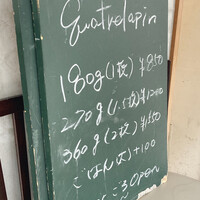 Quatrelapin
180g(1枚)¥850
270g(1.5枚)¥1200
360g(2枚)¥1550
ごはん大+100